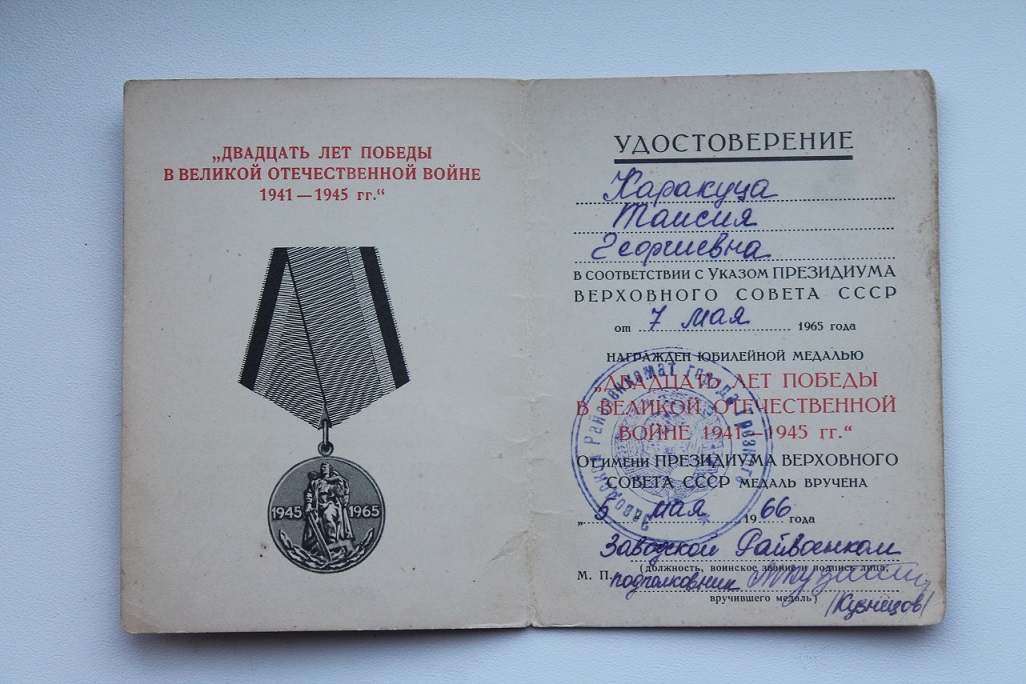 „ДВАДЦАТЬ ЛЕТ ПОБЕДЫ
В ВЕЛИКОЙ ОТЕЧЕСТВЕННОЙ ВОЙНЕ
1941 — 1945 гг.“
1945 1965
УДОСТОВЕРЕНИЕ
Каракуца
Таисия
Георгиевна
В СООТВЕТСТВИИ С УКАЗОМ ПРЕЗИДИУМА
ВЕРХОВНОГО СОВЕТА СССР
от 7 мая 1965 года
НАГРАЖДЕН ЮБИЛЕЙНОЙ МЕДАЛЬЮ
„ДВАДЦАТЬ ЛЕТ ПОБЕДЫ
В ВЕЛИКОЙ ОТЕЧЕСТВЕННОЙ
ВОЙНЕ 1941—1945 гг.“
ОТ ИМЕНИ ПРЕЗИДИУМА ВЕРХОВНОГО
СОВЕТА СССР МЕДАЛЬ ВРУЧЕНА
„ 5 мая 1966 года
Заводской Райвоенком
(должность, воинское звание и подпись лица,
М. П. подполковник
вручившего медаль)
/Кузнецов/
Заводской Райвоенкомат города Грозного